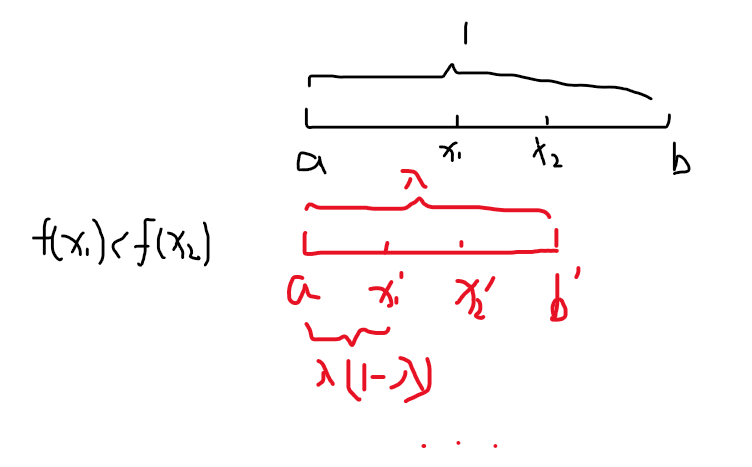 1
a x₁ x₂ b
λ
f(x₁)<f(x₂)
a x₁' x₂' b'
λ(1-λ)
...